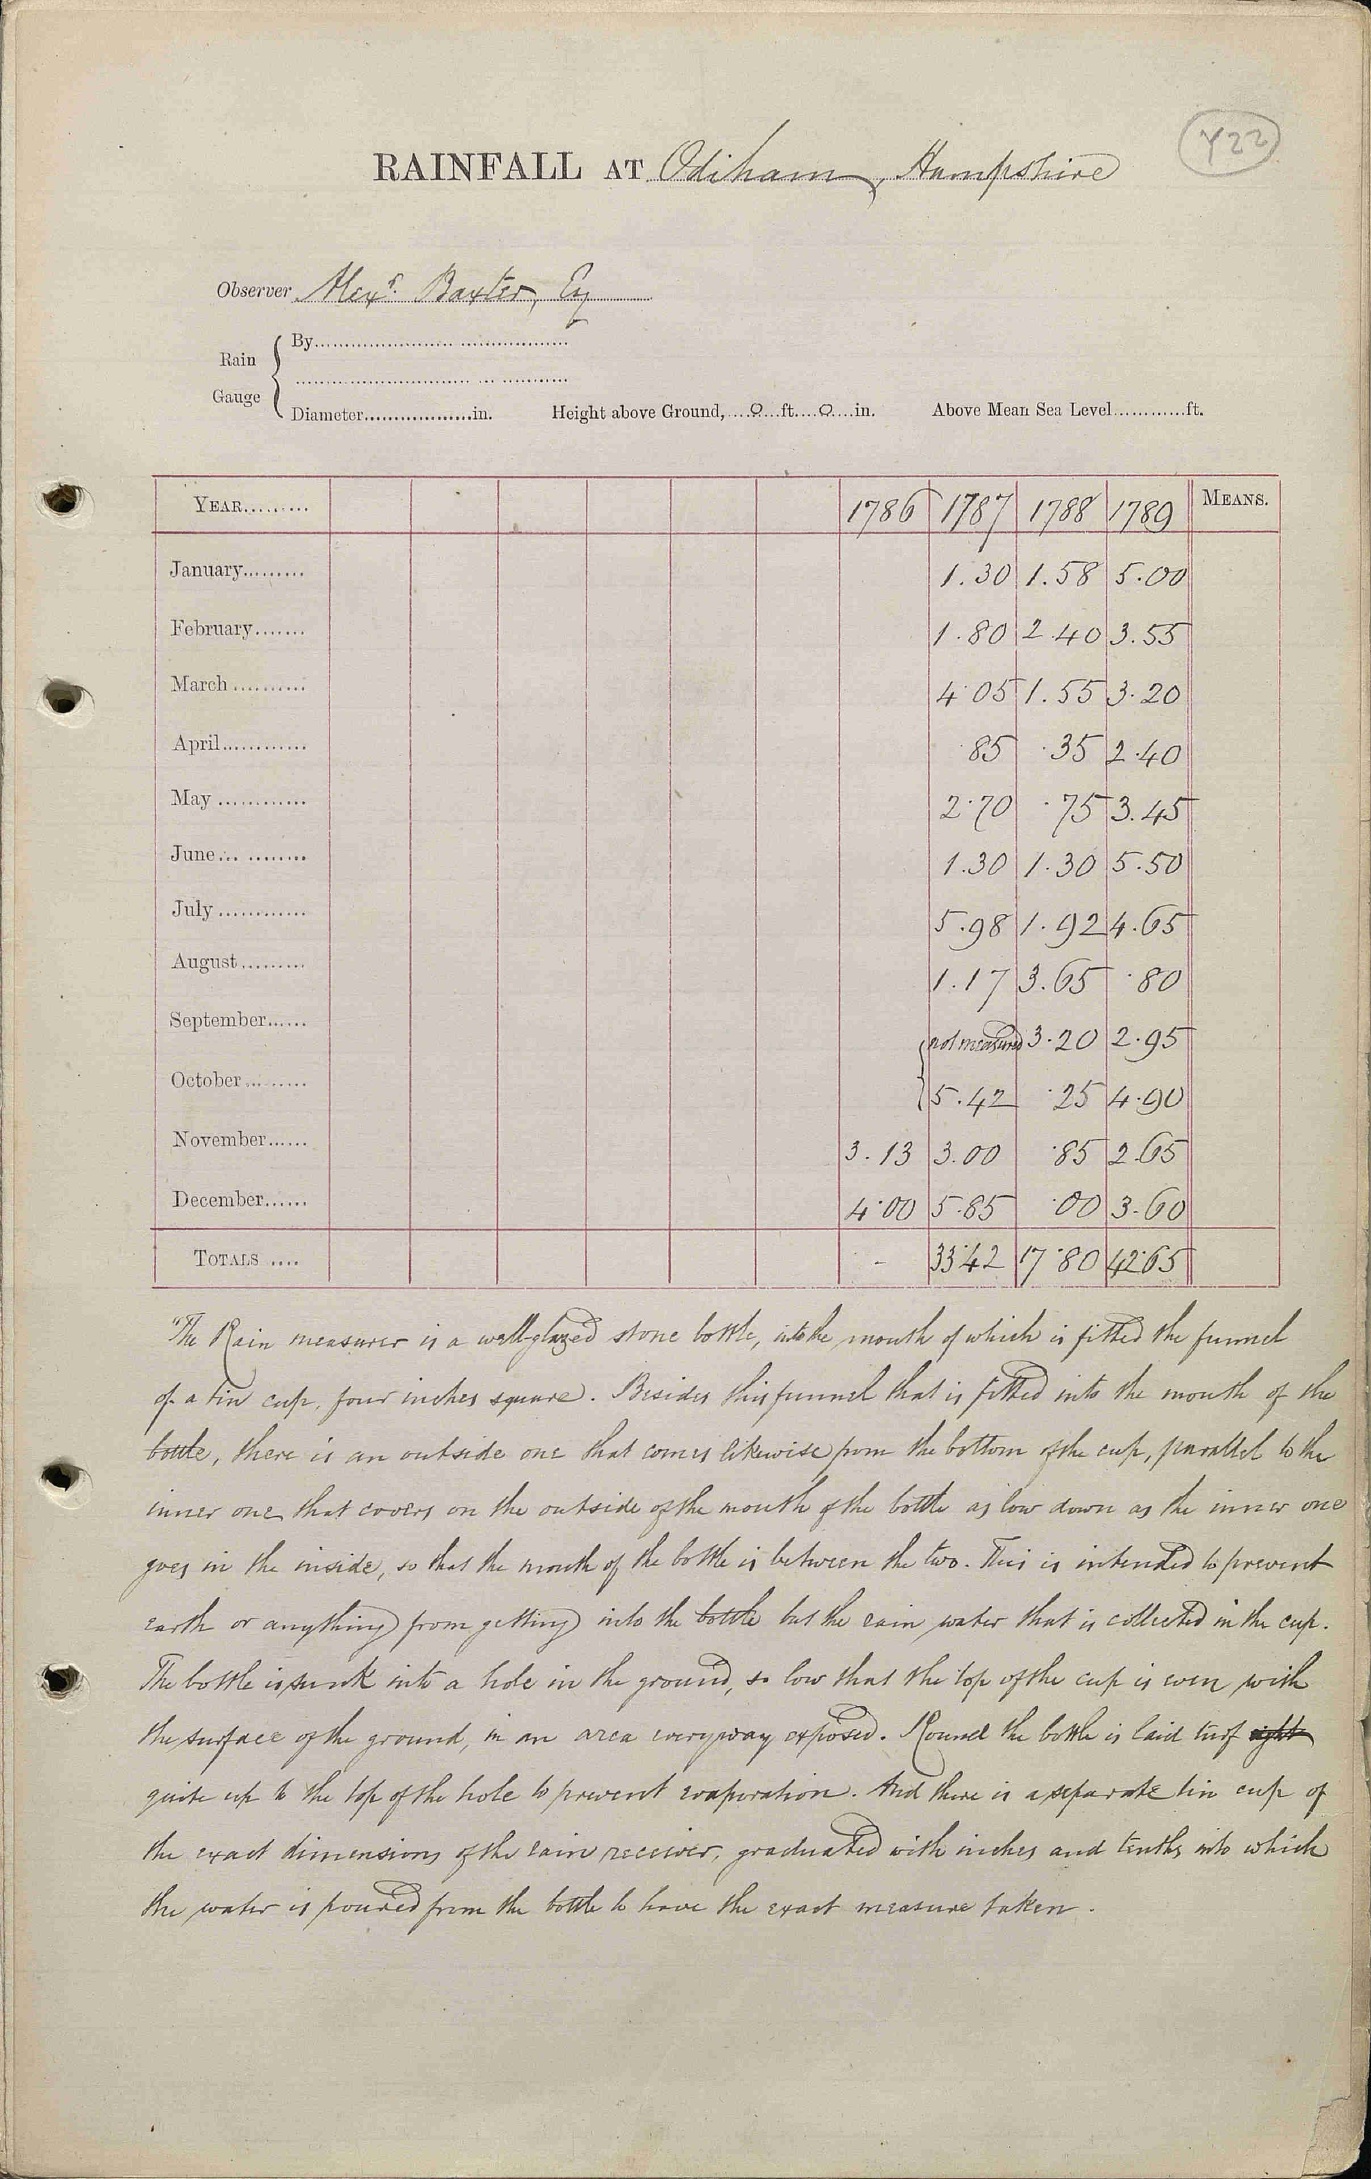 Y22
RAINFALL AT Odiham, Hampshire
Observer Alexr. Baxter, Esq
Rain Gauge { By
Diameter in. Height above Ground, 0 ft. 0 in. Above Mean Sea Level ft.
YEAR 1786 1787 1788 1789 MEANS.
January 1.30 1.58 5.00
February 1.80 2.40 3.55
March 4.05 1.55 3.20
April .85 .35 2.40
May 2.70 .75 3.45
June 1.30 1.30 5.50
July 5.98 1.92 4.65
August 1.17 3.65 .80
September not measured 3.20 2.95
October 5.42 .25 4.90
November 3.13 3.00 .85 2.65
December 4.00 5.85 .00 3.60
TOTALS - 33.42 17.80 42.65
"The Rain measurer is a well-glazed stone bottle, into the mouth of which is fitted the funnel
of a tin cup, four inches square. Besides this funnel that is fitted into the mouth of the
bottle, there is an outside one that comes likewise from the bottom of the cup, parallel to the
inner one that covers on the outside of the mouth of the bottle as low down as the inner one
goes in the inside, so that the mouth of the bottle is between the two. This is intended to prevent
earth or anything from getting into the bottle but the rain water that is collected in the cup.
The bottle is sunk into a hole in the ground, so low that the top of the cup is even with
the surface of the ground, in an area everyway exposed. Round the bottle is laid turf right
quite up to the top of the hole to prevent evaporation. And there is a separate tin cup of
the exact dimensions of the rain receiver, graduated with inches and tenths into which
the water is poured from the bottle to have the exact measure taken.